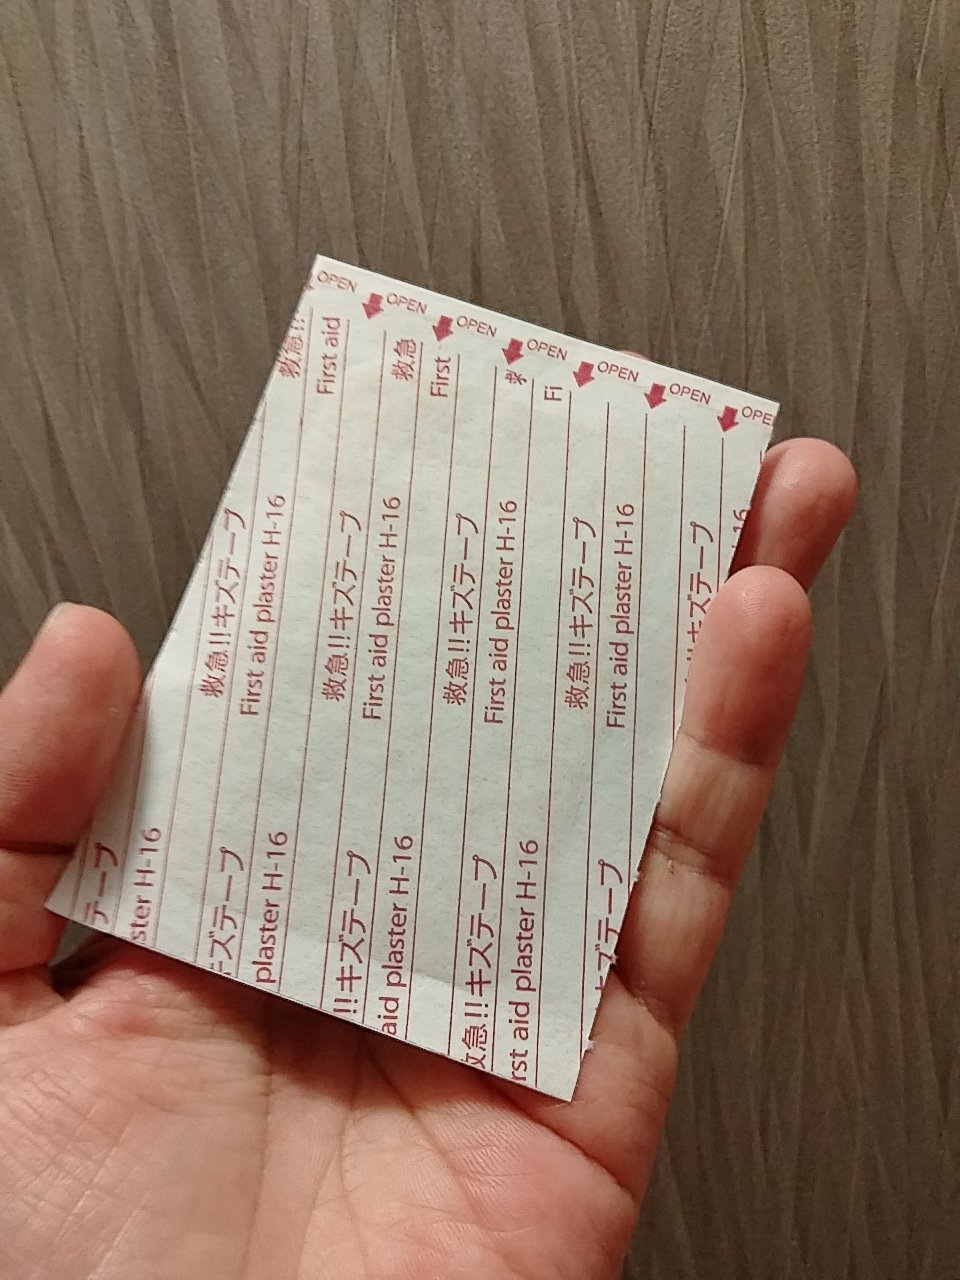 OPEN
OPEN
OPEN
OPEN
OPEN
OPEN
OPE
救急!!
First aid
救急
First
Fi
救急!!キズテープ
First aid plaster H-16
救急!!キズテープ
First aid plaster H-16
救急!!キズテープ
First aid plaster H-16
救急!!キズテープ
First aid plaster H-16
!!キズテープ
16
テープ
ster H-16
キズテープ
plaster H-16
!!キズテープ
aid plaster H-16
救急!!キズテープ
rst aid plaster H-16
キズテープ